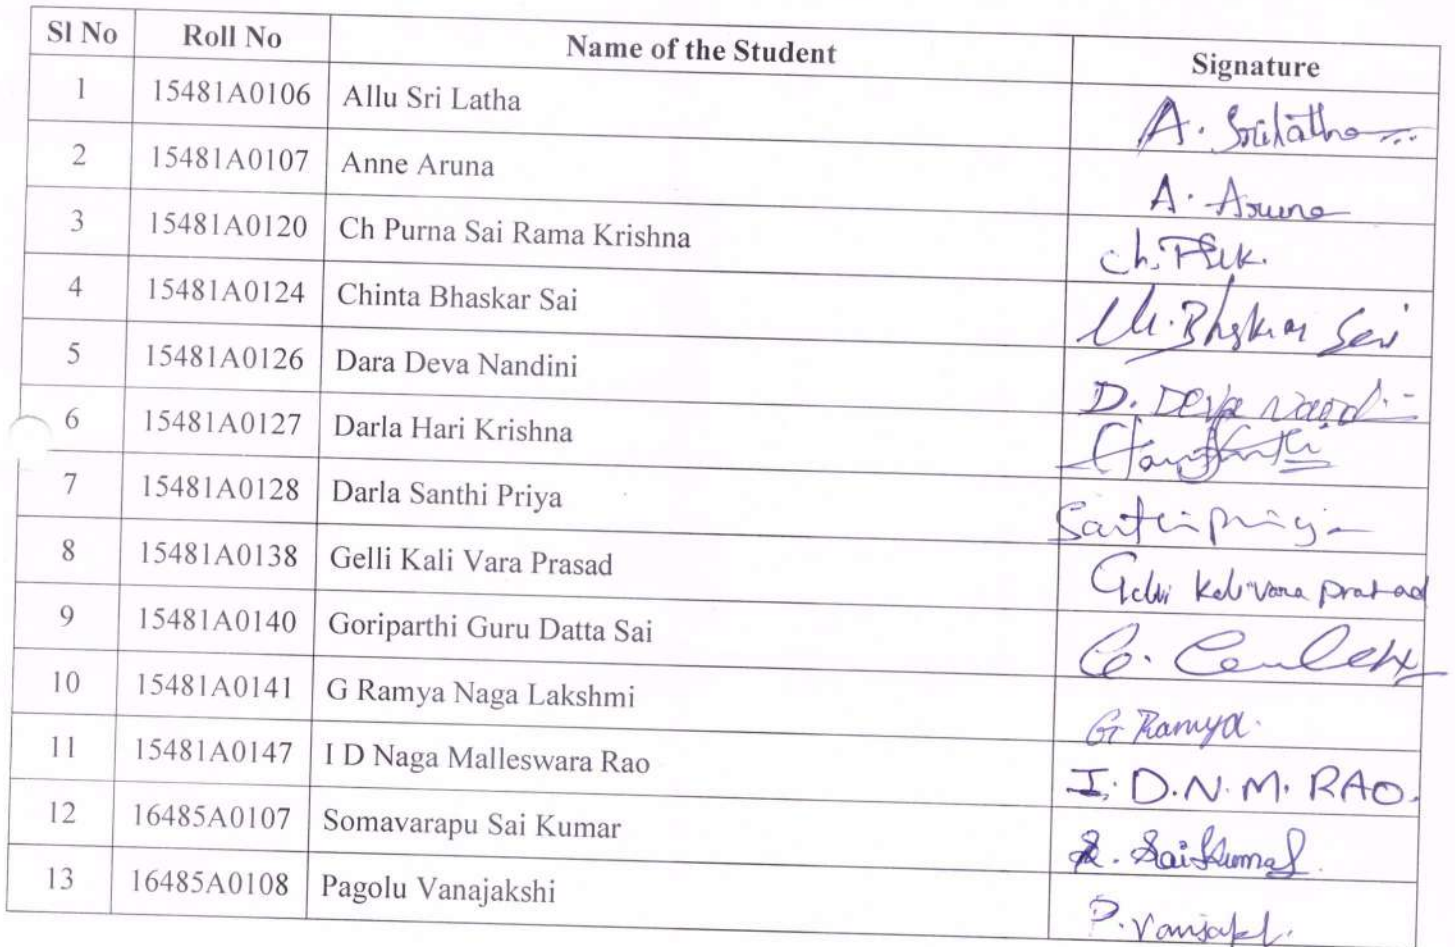 Sl No Roll No Name of the Student Signature
1 15481A0106 Allu Sri Latha A. Srilatha
2 15481A0107 Anne Aruna A. Aruna
3 15481A0120 Ch Purna Sai Rama Krishna Ch. PSRK.
4 15481A0124 Chinta Bhaskar Sai Ch. Bhaskar Sai
5 15481A0126 Dara Deva Nandini D. Deva Nandini
6 15481A0127 Darla Hari Krishna
7 15481A0128 Darla Santhi Priya Santhi priya
8 15481A0138 Gelli Kali Vara Prasad Gelli Kali vara prasad
9 15481A0140 Goriparthi Guru Datta Sai G.
10 15481A0141 G Ramya Naga Lakshmi G Ramya.
11 15481A0147 I D Naga Malleswara Rao I. D.N.M. RAO.
12 16485A0107 Somavarapu Sai Kumar S. Saikumar.
13 16485A0108 Pagolu Vanajakshi P.